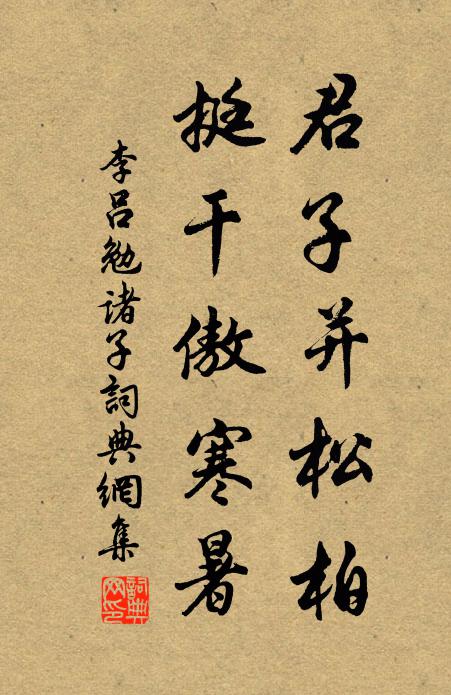 君子并松柏
挺干傲寒暑
李吕勉诸子詞典網集
詞典网印